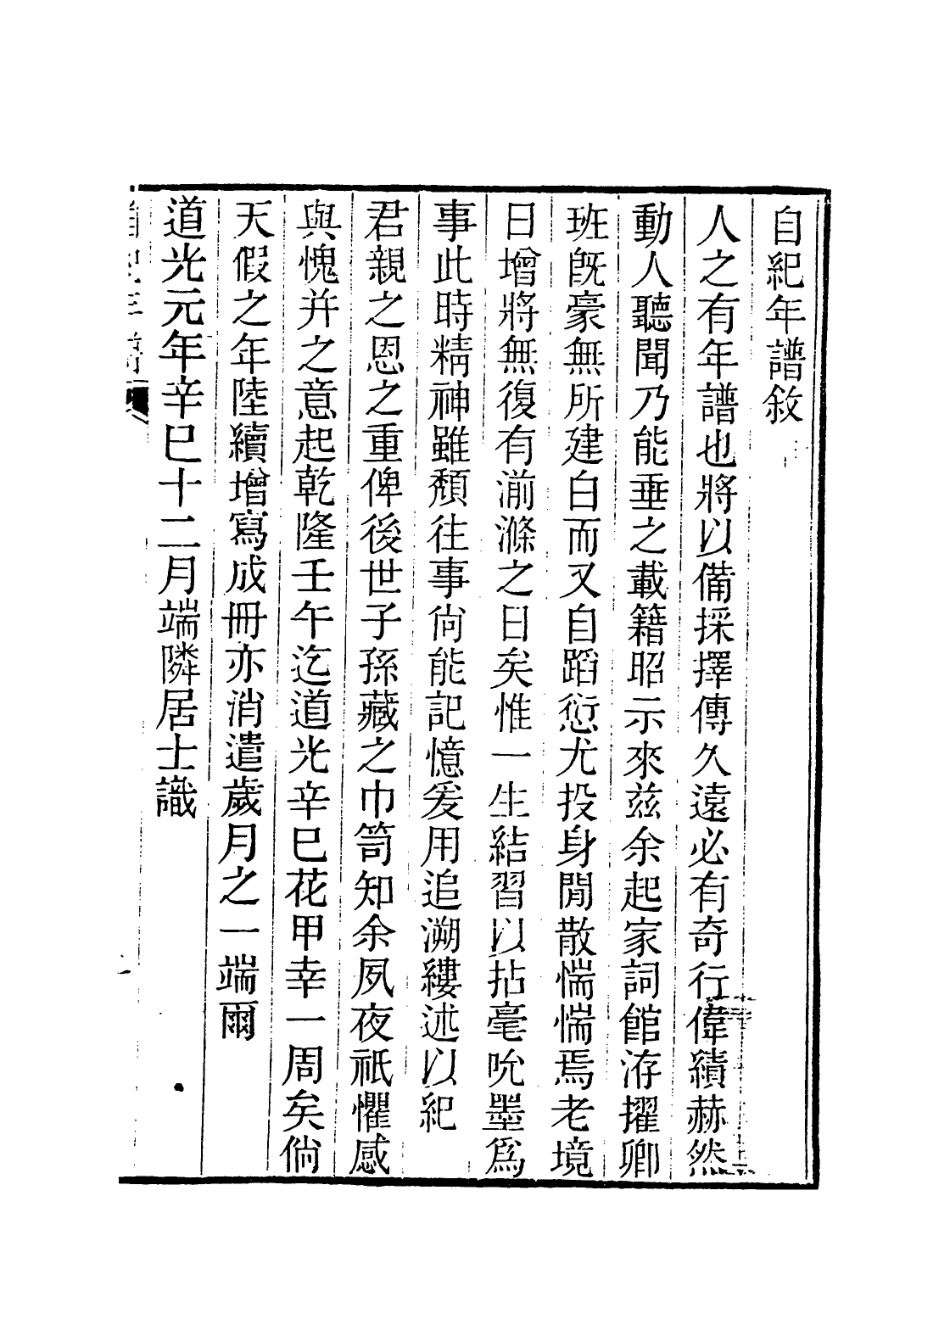 自紀年譜敘
人之有年譜也將以備採擇傳久遠必有奇行偉績赫然
動人聽聞乃能垂之載籍昭示來兹余起家詞館洊擢卿
班旣豪無所建白而又自蹈愆尤投身閒散惴惴焉老境
日增將無復有湔滌之日矣惟一生結習以拈毫吮墨爲
事此時精神雖頹往事尙能記憶爰用追溯縷述以紀
君親之恩之重俾後世子孫藏之巾笥知余夙夜祇懼感
與愧并之意起乾隆壬午迄道光辛巳花甲幸一周矣倘
天假之年陸續增寫成冊亦消遣歲月之一端爾
道光元年辛巳十二月端隣居士識